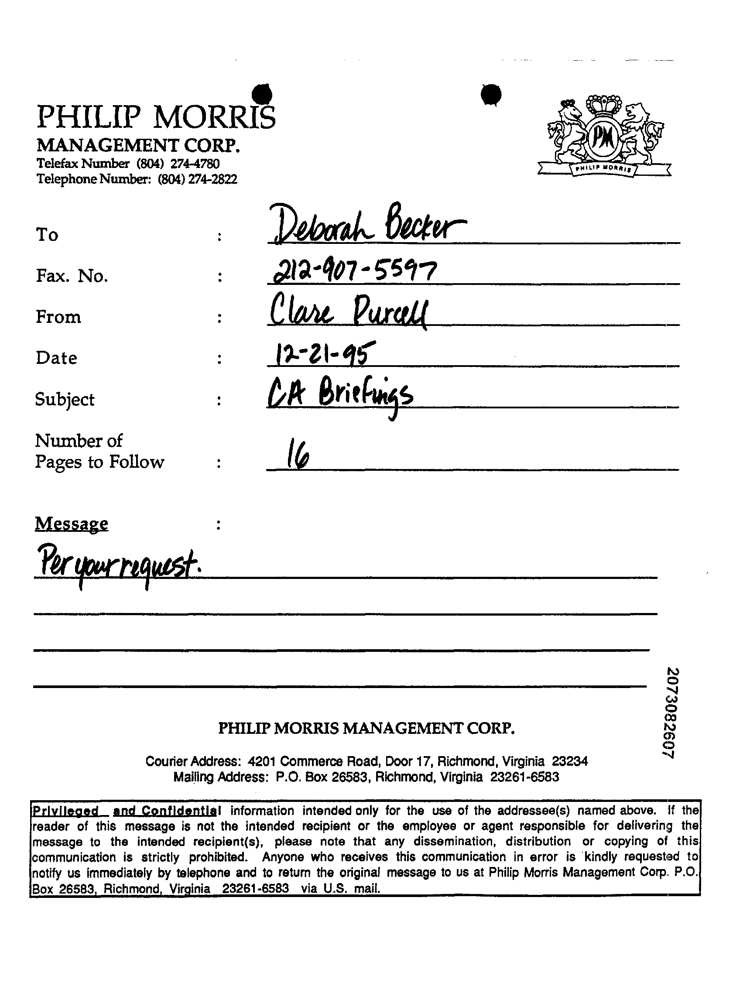 PHILIP MORRIS
MANAGEMENT CORP.
Telefax Number (804) 274-4780
Telephone Number: (804) 274-2822
PM
PHILIP MORRIS
To : Deborah Becker
Fax. No. : 212-907-5597
From : Clare Purcell
Date : 12-21-95
Subject : CA Briefings
Number of
Pages to Follow : 16
Message :
Per your request.
2073082607
PHILIP MORRIS MANAGEMENT CORP.
Courier Address: 4201 Commerce Road, Door 17, Richmond, Virginia 23234
Mailing Address: P.O. Box 26583, Richmond, Virginia 23261-6583
Privileged and Confidential information intended only for the use of the addressee(s) named above. If the
reader of this message is not the intended recipient or the employee or agent responsible for delivering the
message to the intended recipient(s), please note that any dissemination, distribution or copying of this
communication is strictly prohibited. Anyone who receives this communication in error is kindly requested to
notify us immediately by telephone and to return the original message to us at Philip Morris Management Corp. P.O.
Box 26583, Richmond, Virginia 23261-6583 via U.S. mail.